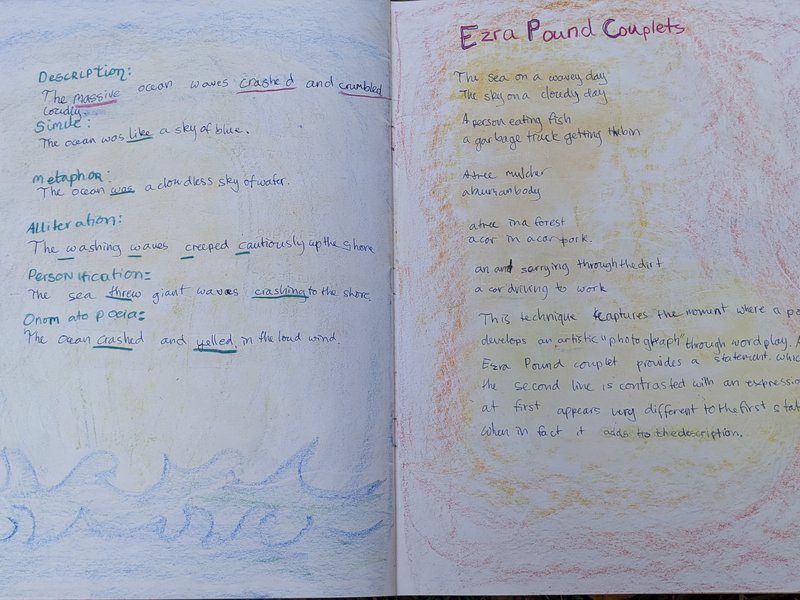 DESCRIPTION:
The massive ocean waves crashed and crumbled
loudly.
Simile:
The ocean was like a sky of blue.
metaphor:
The ocean was a cloudless sky of water.
Alliteration:
The washing waves creeped cautiously up the shore
Personification:
The sea threw giant waves crashing to the shore.
Onomatopoeia:
The ocean crashed and yelled in the loud wind.
Ezra Pound Couplets
The sea on a wavey day
The sky on a cloudy day
A person eating fish
a garbage truck getting bin
A tree mulcher
a human body
a tree in a forest
a car in a car park.
an ant scurrying through the dirt
a car driving to work
This technique captures the moment where a
develops an artistic "photograph" through word play. A
Ezra Pound couplet provides a statement,
the second line is contrasted with an
at first appears very different to the first
when in fact it adds to the description.